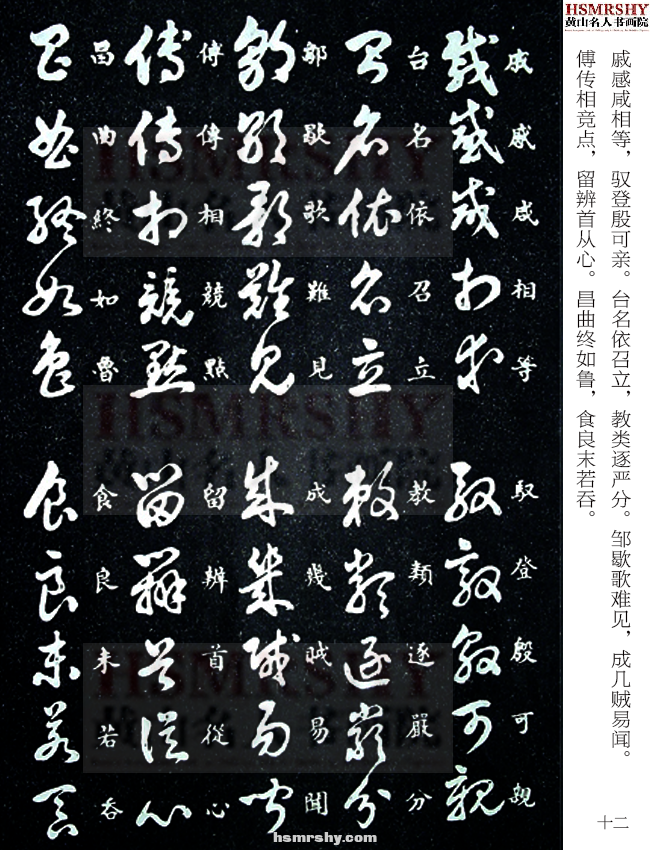 HSMRSHY
黄山名人书画院
戚感咸相等，驭登殷可亲。台名依召立，教类逐严分。邹歇歌难见，成几贼易闻。
傅传相竞点，留辨首从心。昌曲终如鲁，食良末若吞。
戚感咸相等 馭登殷可親
台名依召立 教類逐嚴分
鄒歇歌難見 成幾賊易聞
傅傳相競點 留辨首從心
昌曲終如魯 食良末若吞
HSMRSHY
黄山名人书画院
HSMRSHY
黄山名人书画院
HSMRSHY
黄山名人书画院
hsmrshy.com
十二